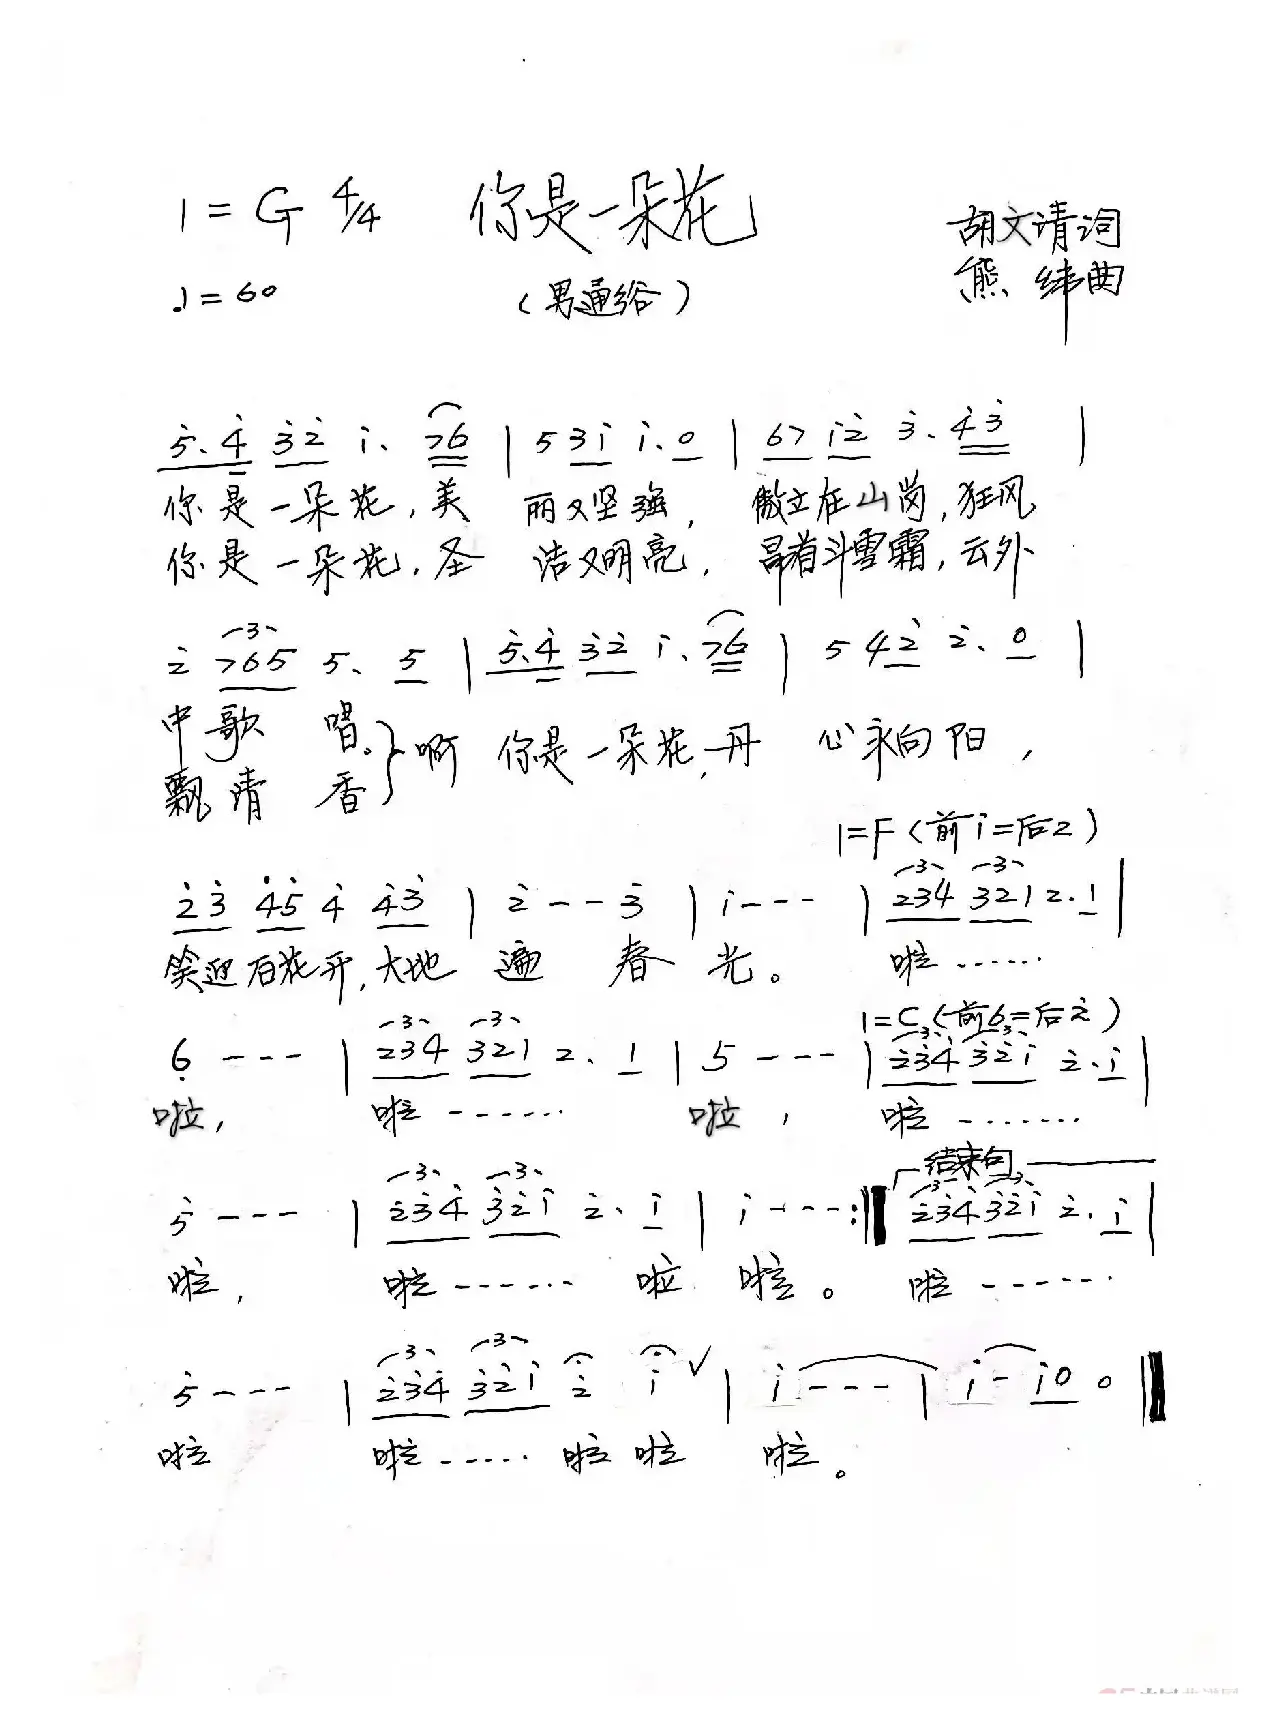 1=G 4/4 你是一朵花 胡文请词
♩=60 (男通俗) 熊 纬曲
5̇.4̇ 3̇2̇ 1̇. 76 | 5 31̇ 1̇.0 | 67 1̇2̇ 3̇.4̇3̇ |
你是一朵花,美 丽又坚强, 傲立在山岗,狂风
你是一朵花,圣 洁又明亮, 昂着斗雪霜,云外
2̇ 765 5. 5 | 5̇.4̇ 3̇2̇ 1̇.76 | 5 42̇ 2̇.0 |
中歌 唱。}啊 你是一朵花,丹 心永向阳,
飘清 香
1=F(前1̇=后2)
2̇3̇ 4̇5̇ 4̇ 4̇3̇ | 2̇ - - 3̇ | 1̇ - - - | 234 321 2.1 |
笑迎百花开,大地 遍 春 光。 啦 ······
1=C(前6=后2̇)
6̣ - - - | 234 321 2. 1 | 5 - - - | 2̇3̇4̇ 3̇2̇1̇ 2̇.1̇ |
啦, 啦 ······· 啦, 啦 ·······
结束句
5̇ - - - | 2̇3̇4̇ 3̇2̇1̇ 2̇. 1̇ | 1̇ - - - :‖ 2̇3̇4̇ 3̇2̇1̇ 2̇. 1̇ |
啦, 啦 ······· 啦 啦。 啦 ·······
5̇ - - - | 2̇3̇4̇ 3̇2̇1̇ 2̇ 1̇ ✓ | 1̇ - - - | 1̇ - 1̇0 0 ‖
啦 啦 ······ 啦 啦 啦。